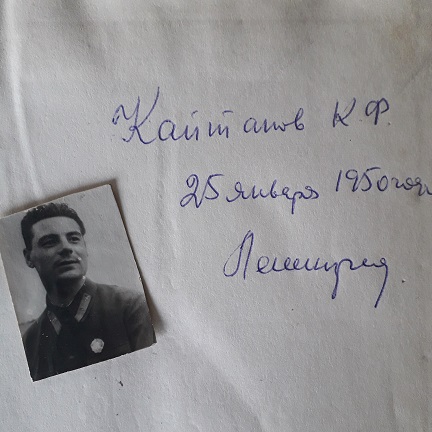 Кайтанов К.Ф.
25 января 1950 года
Ленинград.